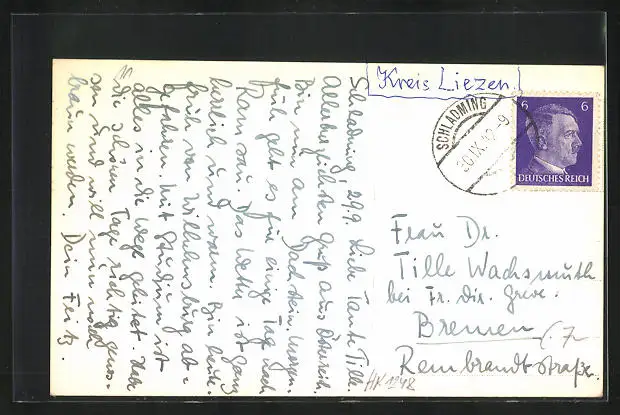 Kreis Liezen.
SCHLADMING
30.IX.42-9
6 6
DEUTSCHES REICH
Schladming, 29.9. Liebe Tante Tille.
Allerherzlichsten Gruß aus Österreich.
Bin nun am Dachstein. Morgen
früh geht es für einige Tag nach
Ram sau. Das Wetter ist ganz
herrlich und warm. Bin heute
früh von Wilhelmsburg ab-
gefahren. Mit Studium ist
alles in die Wege geleitet. Habe
die schönen Tage richtig genos-
sen und will nun noch
braun werden. Dein Fritz.
Frau Dr.
Tille Wachsmuth
bei Fr. Dir. Greve.
Bremen
Rembrandtstraße.
HK 1248